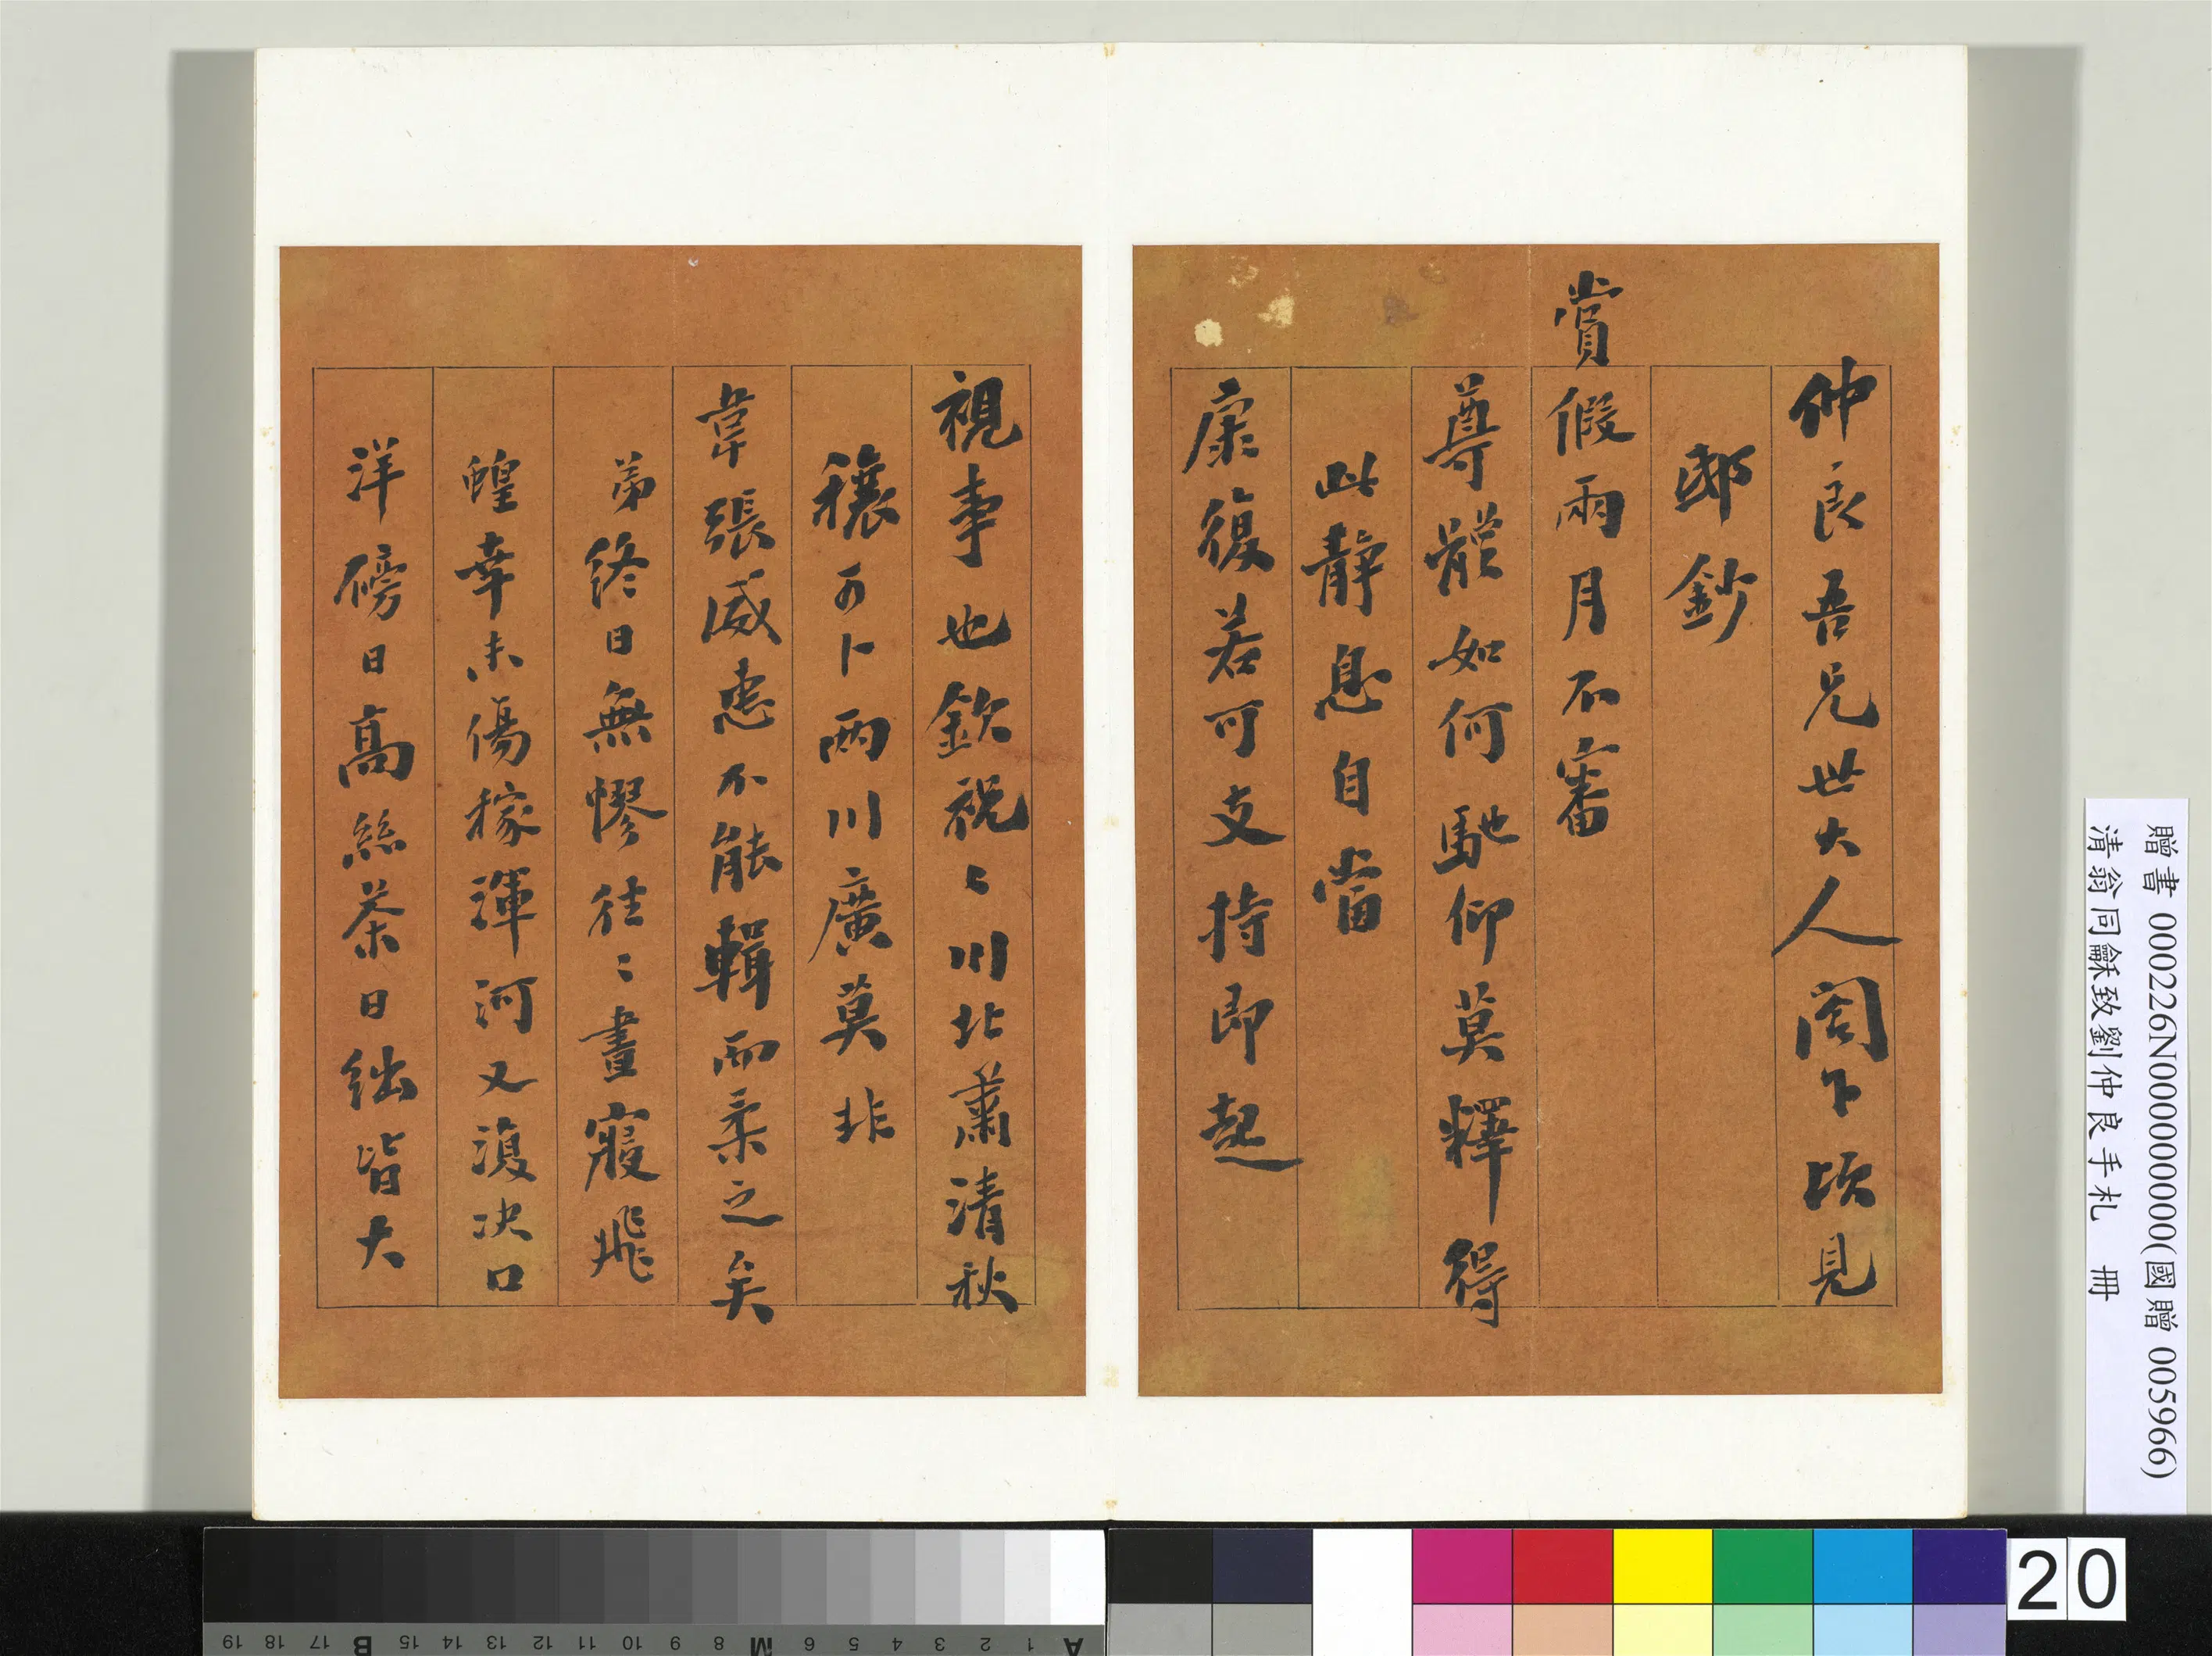 仲良吾兄世大人閣下頃見
邸鈔
賞假兩月不審
尊體如何馳仰莫釋得
此靜息自當
康復若可支持即起
視事也欽祝〻川北肅清秋
穰可卜兩川廣莫非
韋張威惠不能輯而柔之矣
弟終日無憀往〻晝寢飛
蝗幸未傷稼渾河又復決口
洋磅日高絲茶日絀皆大
贈書 000226N000000000(國贈 005966)
清翁同龢致劉仲良手札 冊
20
A 1 2 3 4 5 6 M 8 9 10 11 12 13 14 15 B 17 18 19